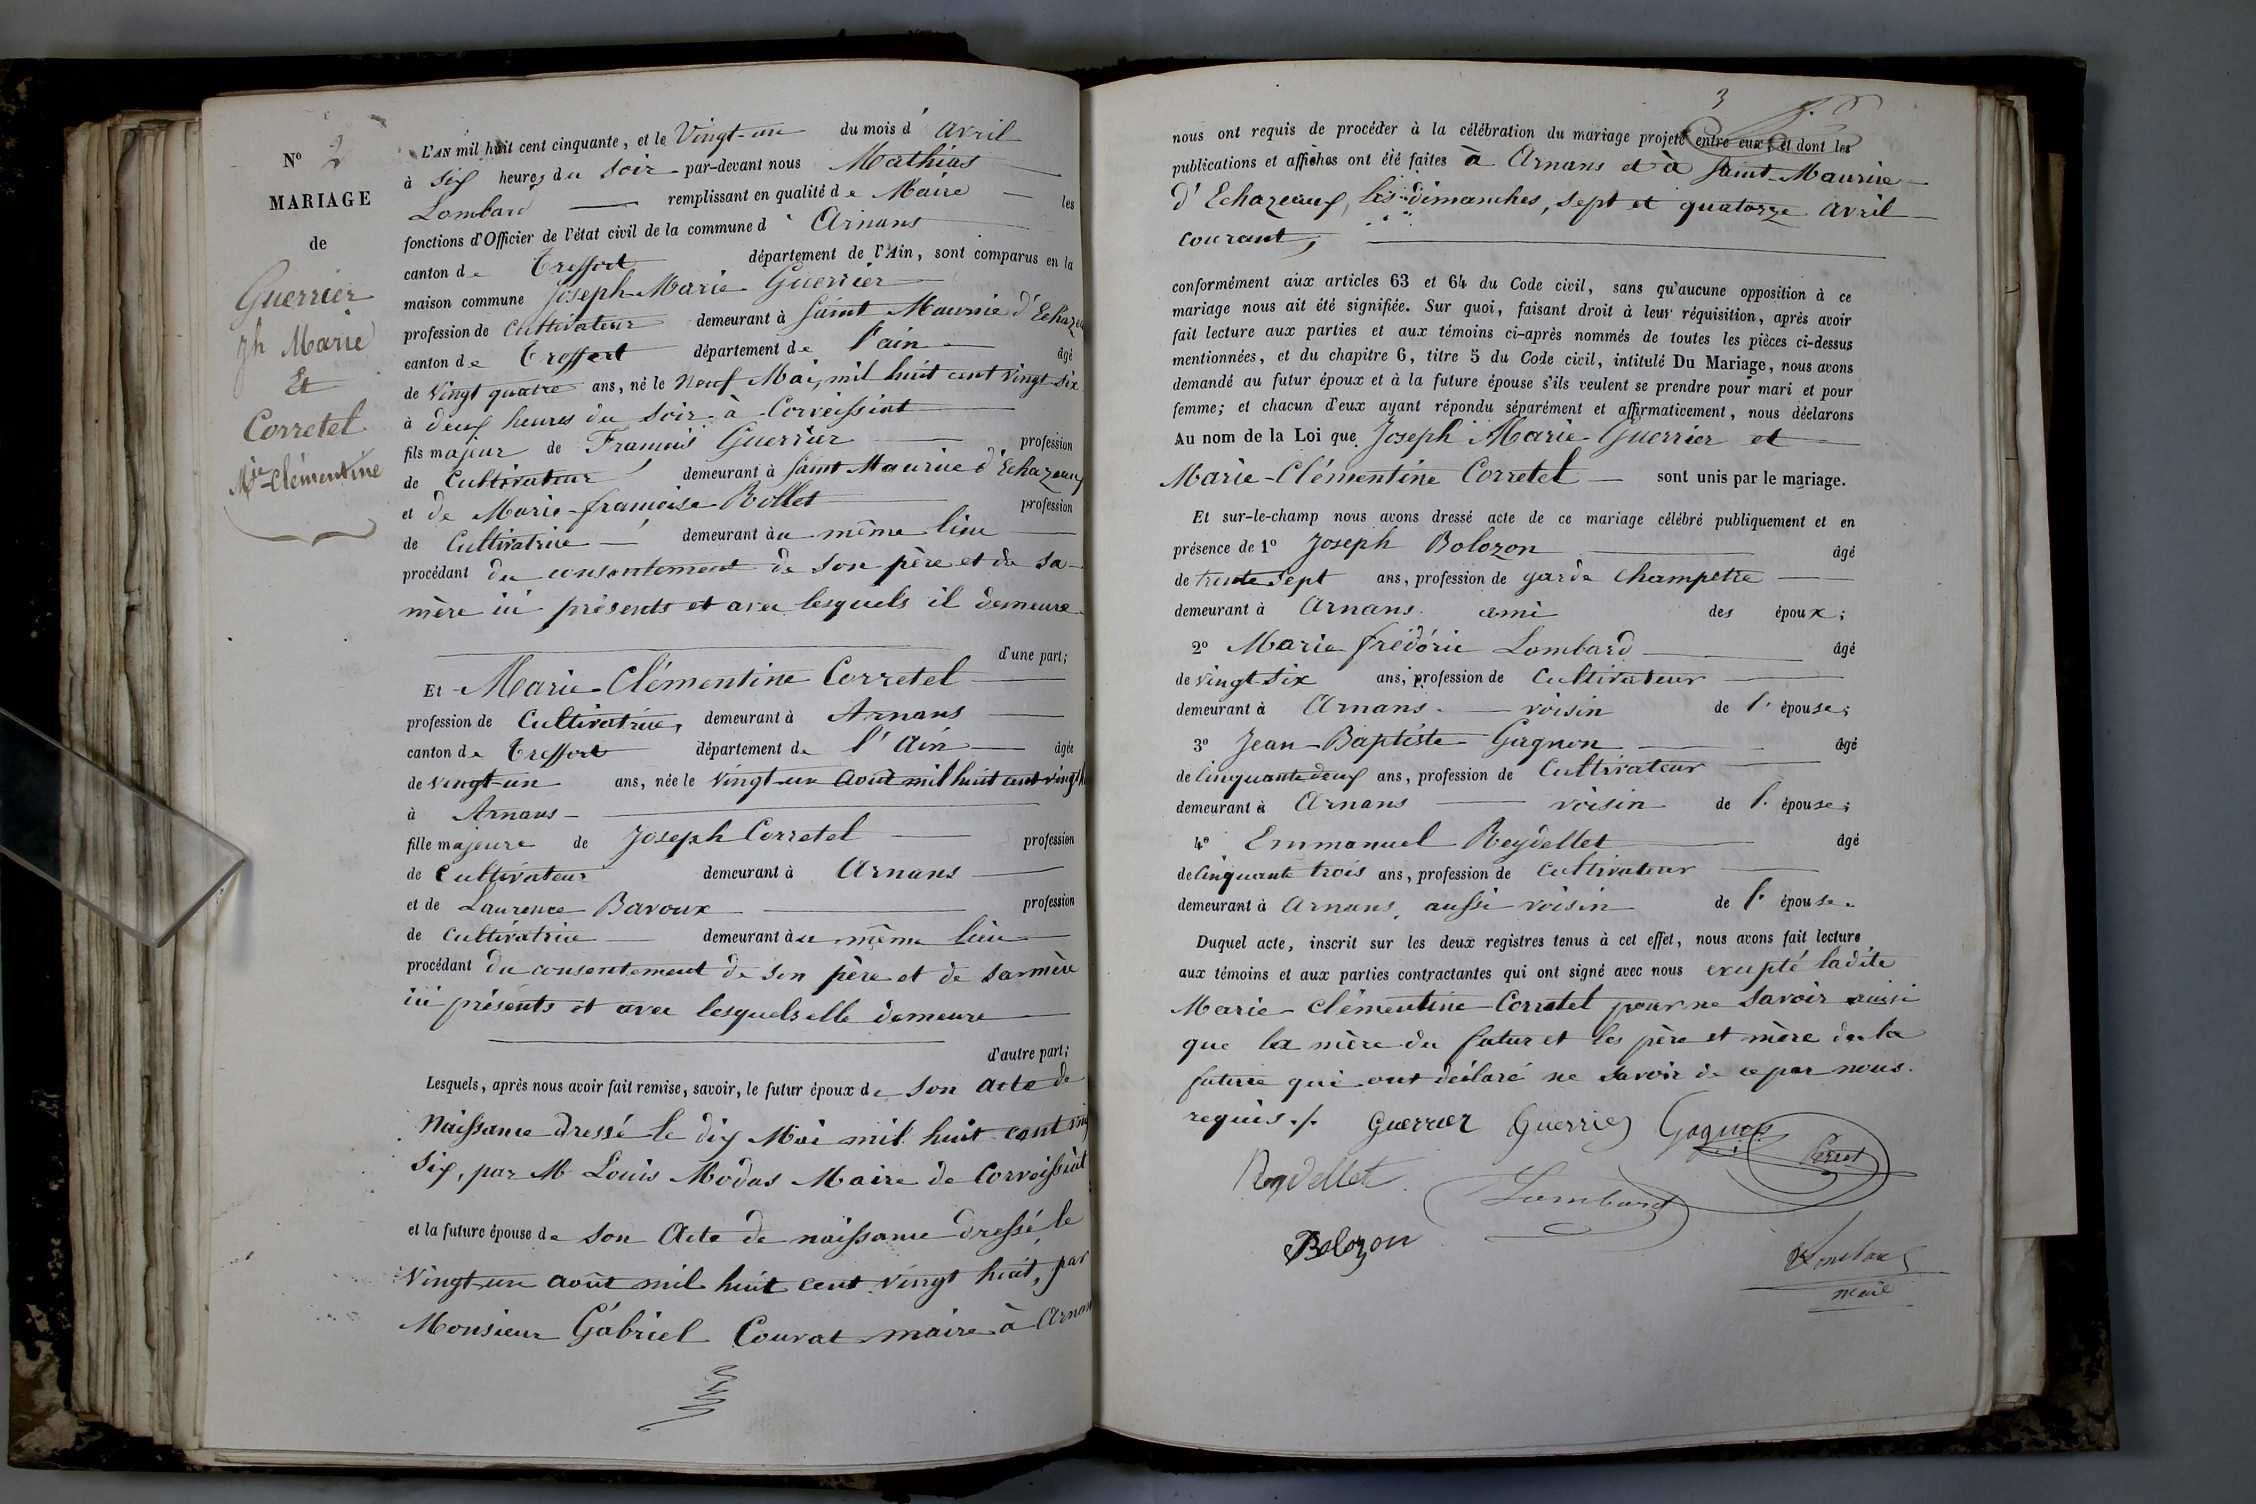 N° 2
MARIAGE
de
Guerrier
Jh Marie
Et
Corretel
Mie Clémentine
L'AN mil huit cent cinquante, et le Vingt-un du mois d'avril
à six heures du soir par-devant nous Mathias
Lombard remplissant en qualité de Maire les
fonctions d'Officier de l'état civil de la commune d'Arnans
canton de Treffort département de l'Ain, sont comparus en la
maison commune Joseph-Marie Guerrier
profession de Cultivateur demeurant à Saint Maurice d'Echaze
canton de Treffort département de l'ain âgé
de vingt quatre ans, né le neuf Mai, mil huit cent vingt-six
à deux heures du soir à Corveissiat
fils majeur de François Guerrier profession
de Cultivateur demeurant à Saint Maurice d'Echazeaux
et de Marie-françoise Rollet profession
de Cultivatrice demeurant au même lieu
procédant du consentement de son père et de sa
mère ici présents et avec lesquels il demeure
d'une part;
Et Marie-Clémentine Corretel
profession de Cultivatrice, demeurant à Arnans
canton de Treffort département de l'Ain âgée
de vingt-un ans, née le vingt-un août mil huit cent vingt h
à Arnans
fille majeure de Joseph Corretel profession
de Cultivateur demeurant à Arnans
et de Laurence Bavoux profession
de cultivatrice demeurant au même lieu
procédant du consentement de son père et de sa mère
ici présents et avec lesquels elle demeure
d'autre part;
Lesquels, après nous avoir fait remise, savoir, le futur époux de son acte de
Naissance dressé le dix Mai mil huit cent ving
six, par Mr Louis Modas Maire de Corveissiat
et la future épouse de son Acte de naissance dressé, le
vingt-un août mil huit cent vingt huit, par
Monsieur Gabriel Couvat maire à Arnans
3
nous ont requis de procéder à la célébration du mariage projeté entre eux, et dont les
publications et affiches ont été faites à Arnans et à Saint-Maurice
d'Echazeaux, les dimanches, sept et quatorze avril
courant,
conformément aux articles 63 et 64 du Code civil, sans qu'aucune opposition à ce
mariage nous ait été signifiée. Sur quoi, faisant droit à leur réquisition, après avoir
fait lecture aux parties et aux témoins ci-après nommés de toutes les pièces ci-dessus
mentionnées, et du chapitre 6, titre 5 du Code civil, intitulé Du Mariage, nous avons
demandé au futur époux et à la future épouse s'ils veulent se prendre pour mari et pour
femme; et chacun d'eux ayant répondu séparément et affirmativement, nous déclarons
Au nom de la Loi que Joseph Marie Guerrier et
Marie-Clémentine Corretel sont unis par le mariage.
Et sur-le-champ nous avons dressé acte de ce mariage célébré publiquement et en
présence de 1° Joseph Bolozon âgé
de trente sept ans, profession de garde champetre
demeurant à Arnans. ami des époux;
2° Marie frédéric Lombard âgé
de vingt six ans, profession de Cultivateur
demeurant à Arnans. voisin de l'épouse;
3° Jean-Baptiste Gagnon âgé
de Cinquante deux ans, profession de Cultivateur
demeurant à Arnans voisin de l'épouse;
4° Emmanuel Reydellet âgé
de Cinquante trois ans, profession de Cultivateur
demeurant à Arnans, aussi voisin de l'épouse.
Duquel acte, inscrit sur les deux registres tenus à cet effet, nous avons fait lecture
aux témoins et aux parties contractantes qui ont signé avec nous excepté ladite
Marie-Clémentine Corretel pour ne savoir ainsi
que la mère du futur et les père et mère de la
future qui ont déclaré ne savoir de ce par nous
requis ./. Guerrier Guerrier Gagnon
Perret
Reydellet Lombard
Bolozon
Lombard
maire